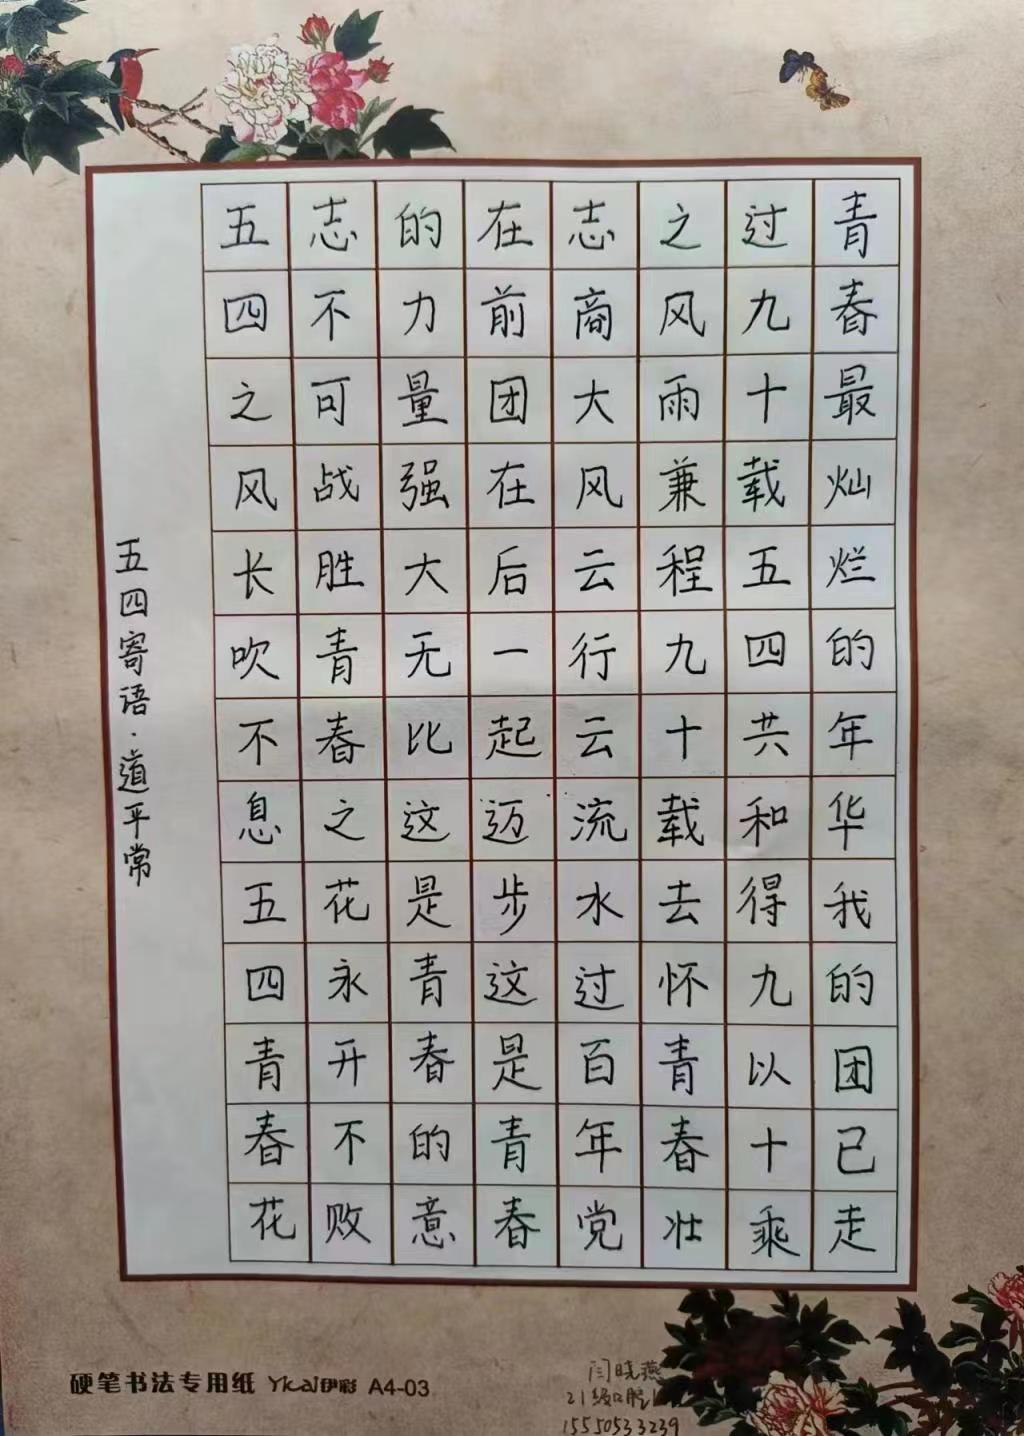 青春最灿烂的年华我的团已走
过九十载五四共和得九以十乘
之风雨兼程九十载去怀青春壮
志商大风云行云流水过百年党
在前团在后一起迈步这是青春
的力量强大无比这是青春的意
志不可战胜青春之花永开不败
五四之风长吹不息五四青春花
五四寄语·道平常
硬笔书法专用纸 Yicai伊彩 A4-03
闫晓燕
21级口腔
15550533239